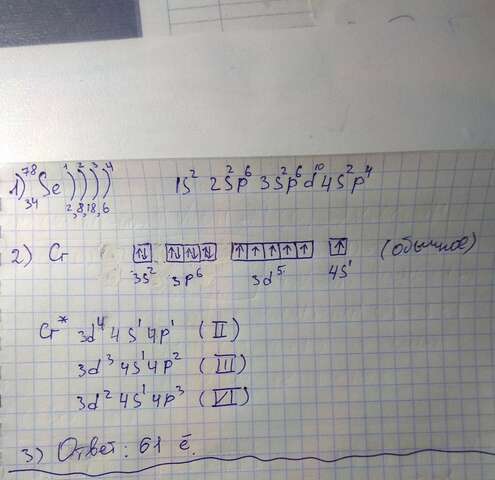 1) ⁷⁸₃₄Se ))))  1s² 2s²p⁶ 3s²p⁶d¹⁰ 4s²p⁴
1 2 3 4
2,8,18,6
2) Cr ↑↓ ↑↓ ↑↓ ↑↓ ↑ ↑ ↑ ↑ ↑ ↑ (обычное)
3s² 3p⁶ 3d⁵ 4s¹
Cr* 3d⁴ 4s¹ 4p¹ (II)
3d³ 4s¹ 4p² (III)
3d² 4s¹ 4p³ (VI)
3) Ответ: 61 ē.